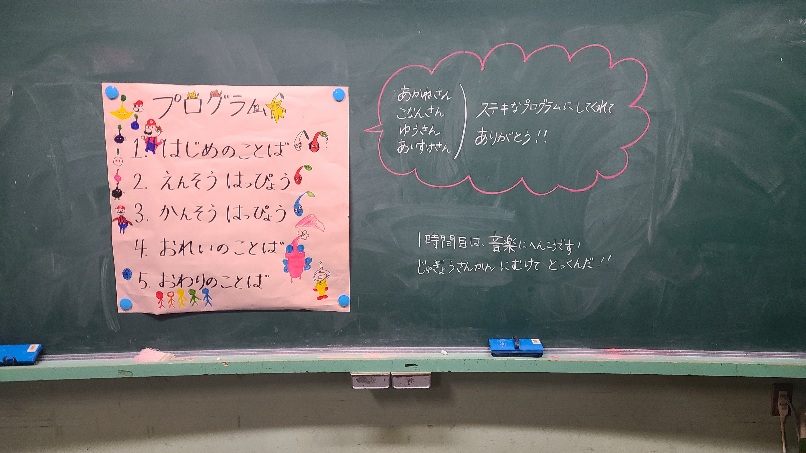 プログラム
1. はじめのことば
2. えんそう はっぴょう
3. かんそう はっぴょう
4. おれいのことば
5. おわりのことば
あかねさん
こなんさん
ゆうさん
あいすけさん
ステキなプログラムにしてくれて
ありがとう!!
1時間目は、音楽にへんこうです!
じゅぎょうさんかんにむけて とっくんだ!!